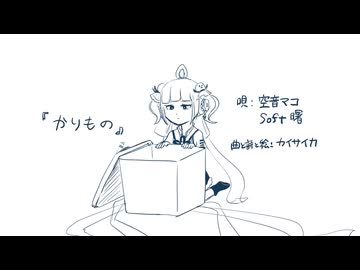 『かりもの』
唄:空音マコ
Soft 曙
曲と詞と絵:カイサイカ